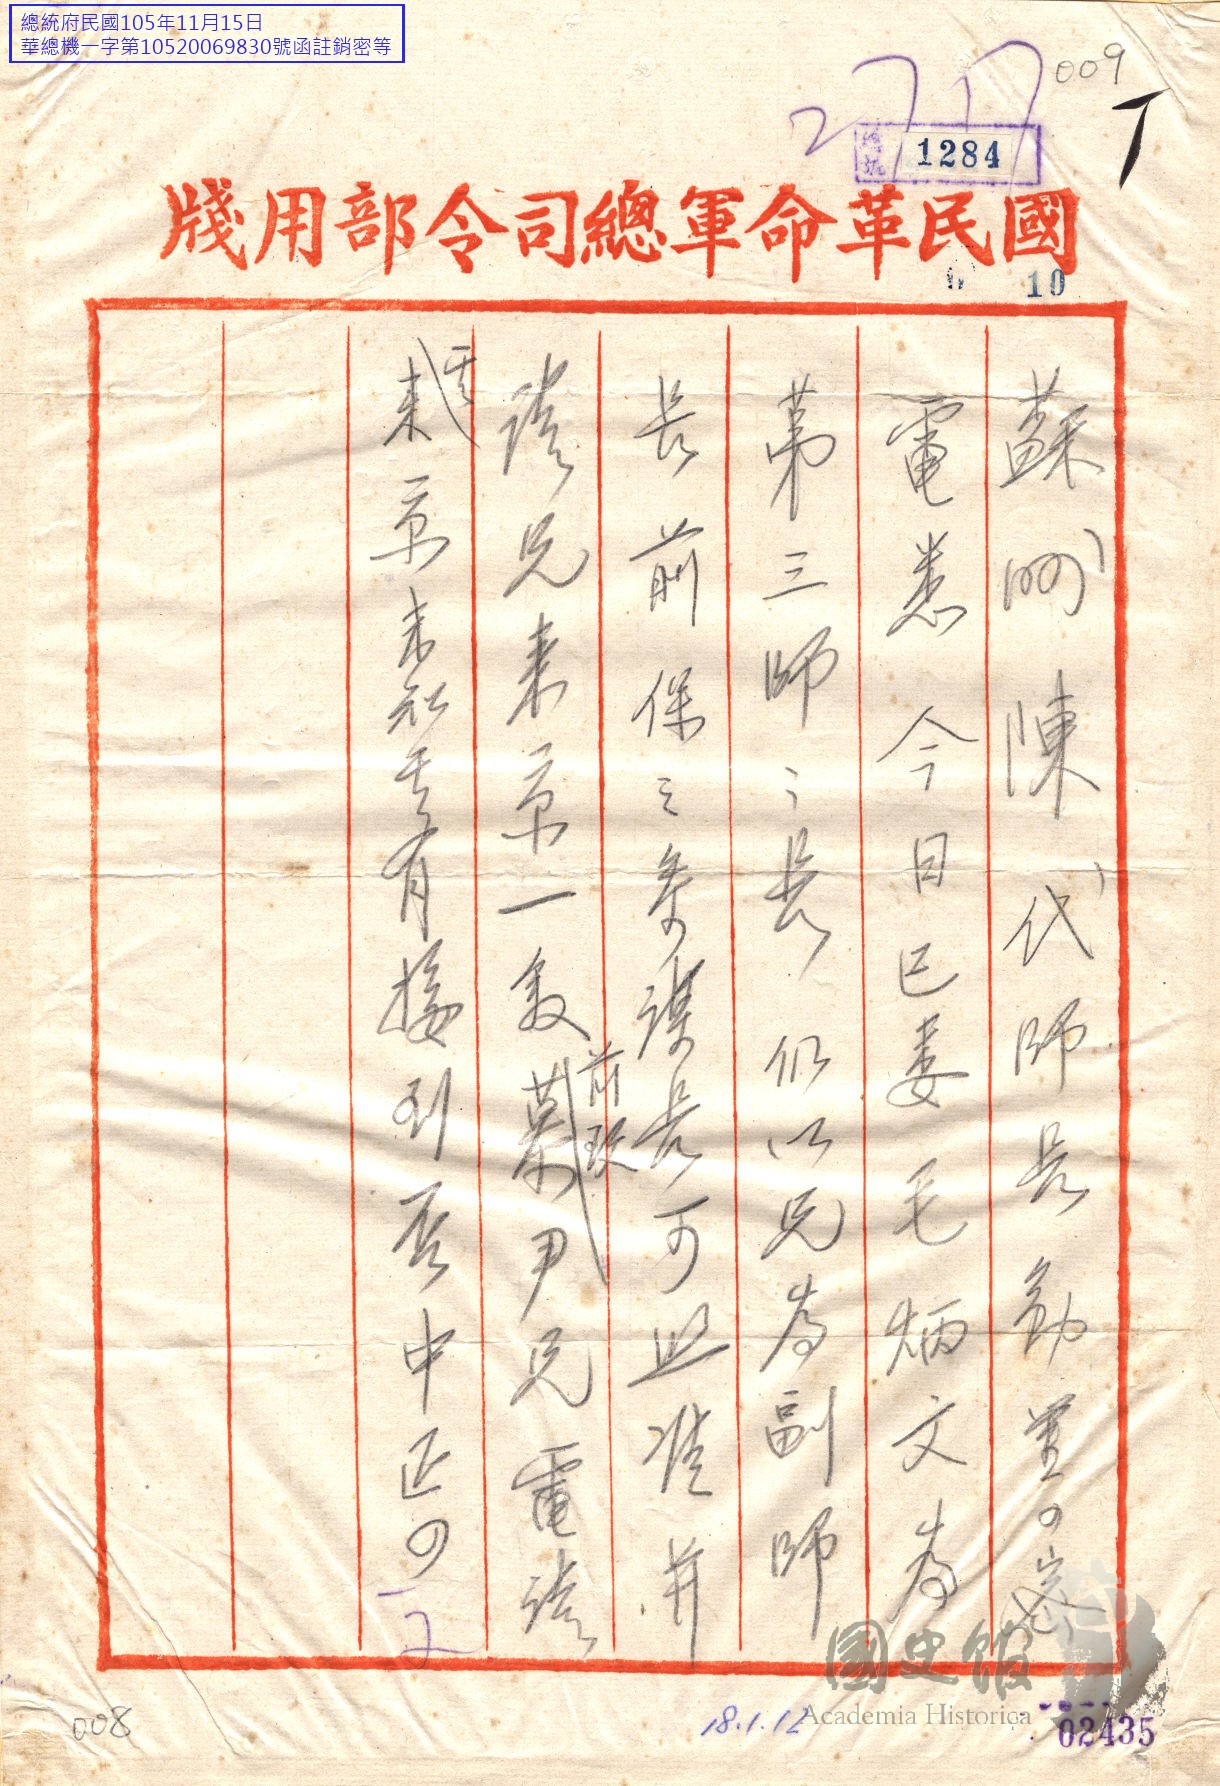 總統府民國105年11月15日
華總機一字第10520069830號函註銷密等
009
2717
總號 1284
國民革命軍總司令部用牋
10
蘇州陳代師長勛鑒密
電悉今日已委毛炳文為
第三師師長仍以兄為副師
長前保之參謀長可照准并
請兄來京一敘前致慕尹兄電請
其來京未知其有接到否中正
18.1.12
008
國史館
Academia Historica
02435